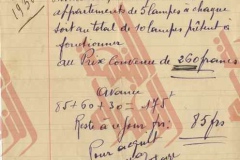 1930
appartements de 5 lampes à chaque
soit au total de 10 lampes prêtent à
fonctionner
au Prix convenue de 260 francs
avance
85 + 60 + 30 = 175
Reste à ce jour frs: 85 frs
Pour acquit